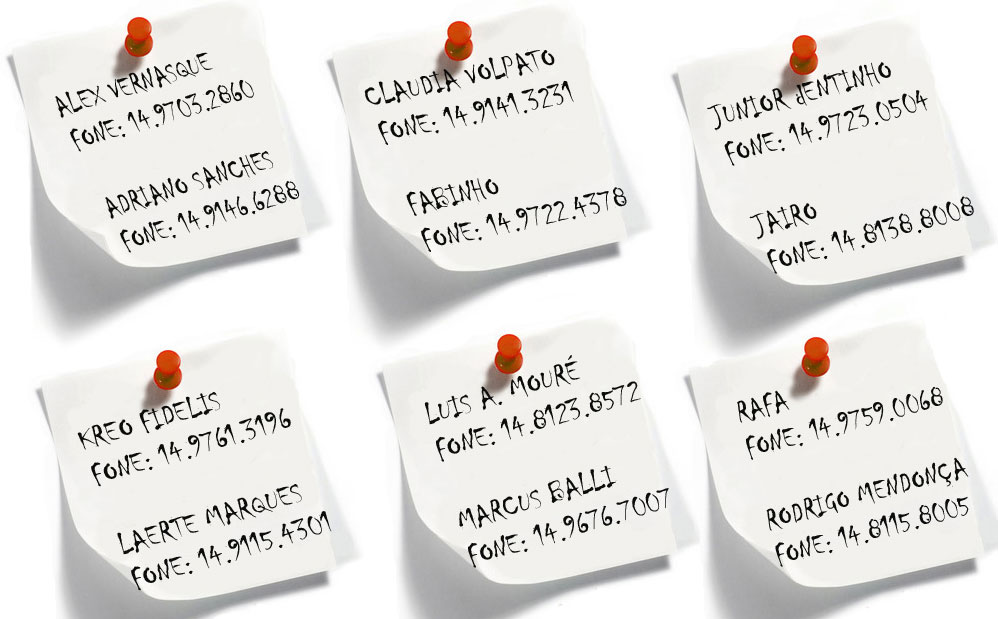 ALEX VERNASQUE
FONE: 14.9703.2860
ADRIANO SANCHES
FONE: 14.9146.6288
CLAUDIA VOLPATO
FONE: 14.9141.3231
FABINHO
FONE: 14.9722.4378
JUNIOR dENTINHO
FONE: 14.9723.0504
JAIRO
FONE: 14.8138.8008
KREO FIDELIS
FONE: 14.9761.3196
LAERTE MARQUES
FONE: 14.9115.4301
LUIS A. MOURÉ
FONE: 14.8123.8572
MARCUS BALLI
FONE: 14.9676.7007
RAFA
FONE: 14.9759.0068
RODRIGO MENDONÇA
FONE: 14.8115.8005